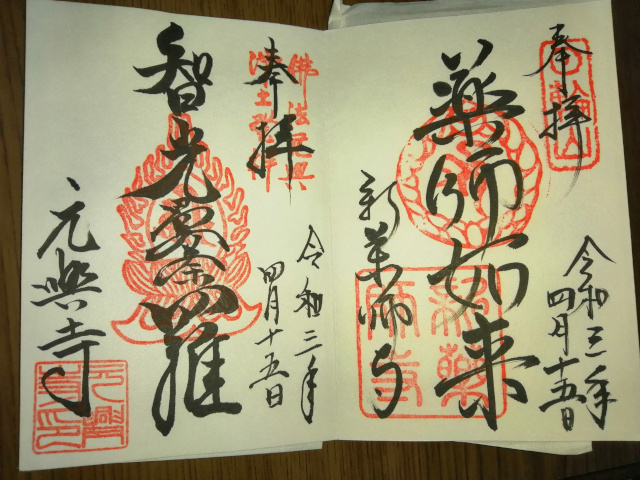 奉拝
令和三年
四月十五日
薬師如来
新薬師寺
奉拝
佛法元興
令和三年
四月十五日
智光曼荼羅
元興寺